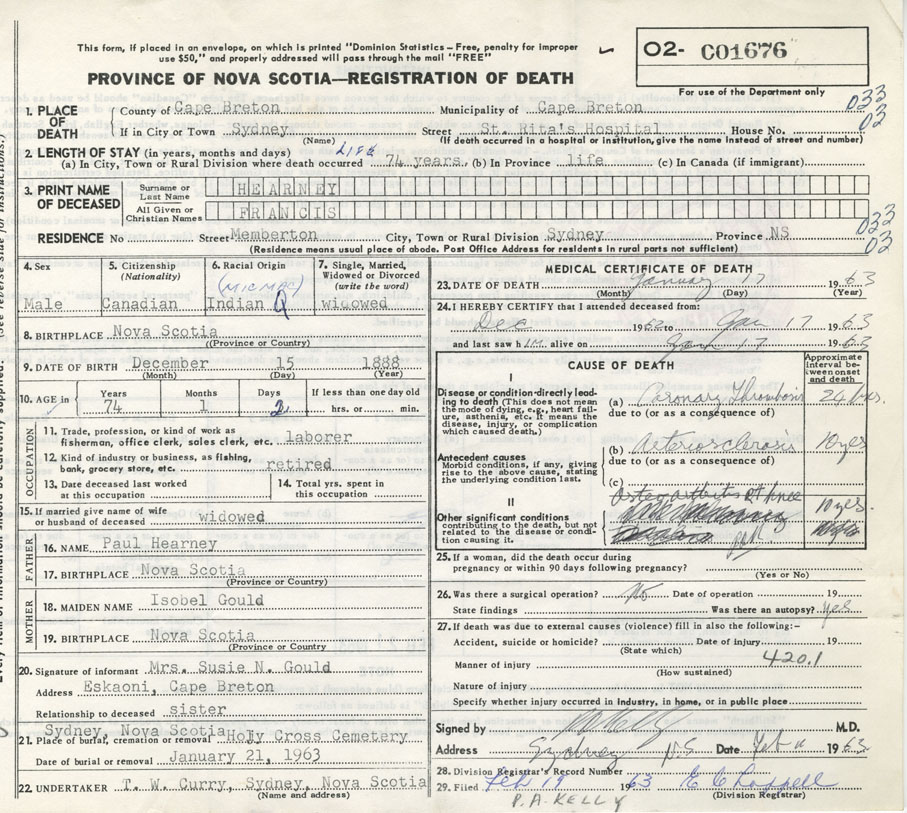 This form, if placed in an envelope, on which is printed "Dominion Statistics – Free, penalty for improper
use $50," and properly addressed will pass through the mail "FREE"
PROVINCE OF NOVA SCOTIA—REGISTRATION OF DEATH
O2- C01676
For use of the Department only
033
03
1. PLACE OF DEATH
County of Cape Breton Municipality of Cape Breton
If in City or Town Sydney Street St. Rita's Hospital House No.
(Name) (If death occurred in a hospital or institution, give the name instead of street and number)
2. LENGTH OF STAY (in years, months and days) Life
(a) In City, Town or Rural Division where death occurred 74 years (b) In Province life (c) In Canada (if immigrant)
3. PRINT NAME OF DECEASED
Surname or Last Name HEARNEY
All Given or Christian Names FRANCIS
033
03
RESIDENCE No Street Memberton City, Town or Rural Division Sydney Province NS
(Residence means usual place of abode. Post Office Address for residents in rural parts not sufficient)
4. Sex
Male
5. Citizenship (Nationality)
Canadian
6. Racial Origin
(MICMAC)
Indian
7. Single, Married, Widowed or Divorced (write the word)
widowed
8. BIRTHPLACE Nova Scotia
(Province or Country)
9. DATE OF BIRTH December 15 1888
(Month) (Day) (Year)
10. AGE in Years Months Days If less than one day old
74 1 2 hrs. or min.
OCCUPATION
11. Trade, profession, or kind of work as
fisherman, office clerk, sales clerk, etc. laborer
12. Kind of industry or business, as fishing,
bank, grocery store, etc. retired
13. Date deceased last worked at this occupation
14. Total yrs. spent in this occupation
15. If married give name of wife
or husband of deceased widowed
FATHER
16. NAME Paul Hearney
17. BIRTHPLACE Nova Scotia
(Province or Country)
MOTHER
18. MAIDEN NAME Isobel Gould
19. BIRTHPLACE Nova Scotia
(Province or Country
20. Signature of informant Mrs. Susie N. Gould
Address Eskaoni, Cape Breton
Relationship to deceased sister
Sydney, Nova Scotia
21. Place of burial, cremation or removal Holly Cross Cemetery
Date of burial or removal January 21, 1963
22. UNDERTAKER T. W. Curry, Sydney, Nova Scotia
(Name and address)
MEDICAL CERTIFICATE OF DEATH
23. DATE OF DEATH January 17 1963
(Month) (Day) (Year)
24. I HEREBY CERTIFY that I attended deceased from:
Dec 1962 to Jan 17 1963
and last saw him alive on Jan 17 1963
CAUSE OF DEATH
Approximate interval between onset and death
I
Disease or condition directly leading to death (This does not mean the mode of dying, e.g., heart failure, asthenia, etc. It means the disease, injury, or complication which caused death.)
(a) Coronary Thrombosis 24 hrs.
due to (or as a consequence of)
Antecedent causes
Morbid conditions, if any, giving rise to the above cause, stating the underlying condition last.
(b) Arteriosclerosis 10 yrs
due to (or as a consequence of)
(c)
II
Other significant conditions contributing to the death, but not related to the disease or condition causing it.
Osteoarthritis Rt knee 10 yrs.
25. If a woman, did the death occur during
pregnancy or within 90 days following pregnancy?
(Yes or No)
26. Was there a surgical operation? No Date of operation 19
State findings Was there an autopsy? Yes
27. If death was due to external causes (violence) fill in also the following:–
Accident, suicide or homicide? Date of injury 19
(State which)
420.1
Manner of injury
(How sustained)
Nature of injury
Specify whether injury occurred in industry, in home, or in public place
Signed by M.D.
Address Sydney N.S. Date Feb 11 1963
28. Division Registrar's Record Number
29. Filed Feb 19 1963
(Division Registrar)
P.A. KELLY